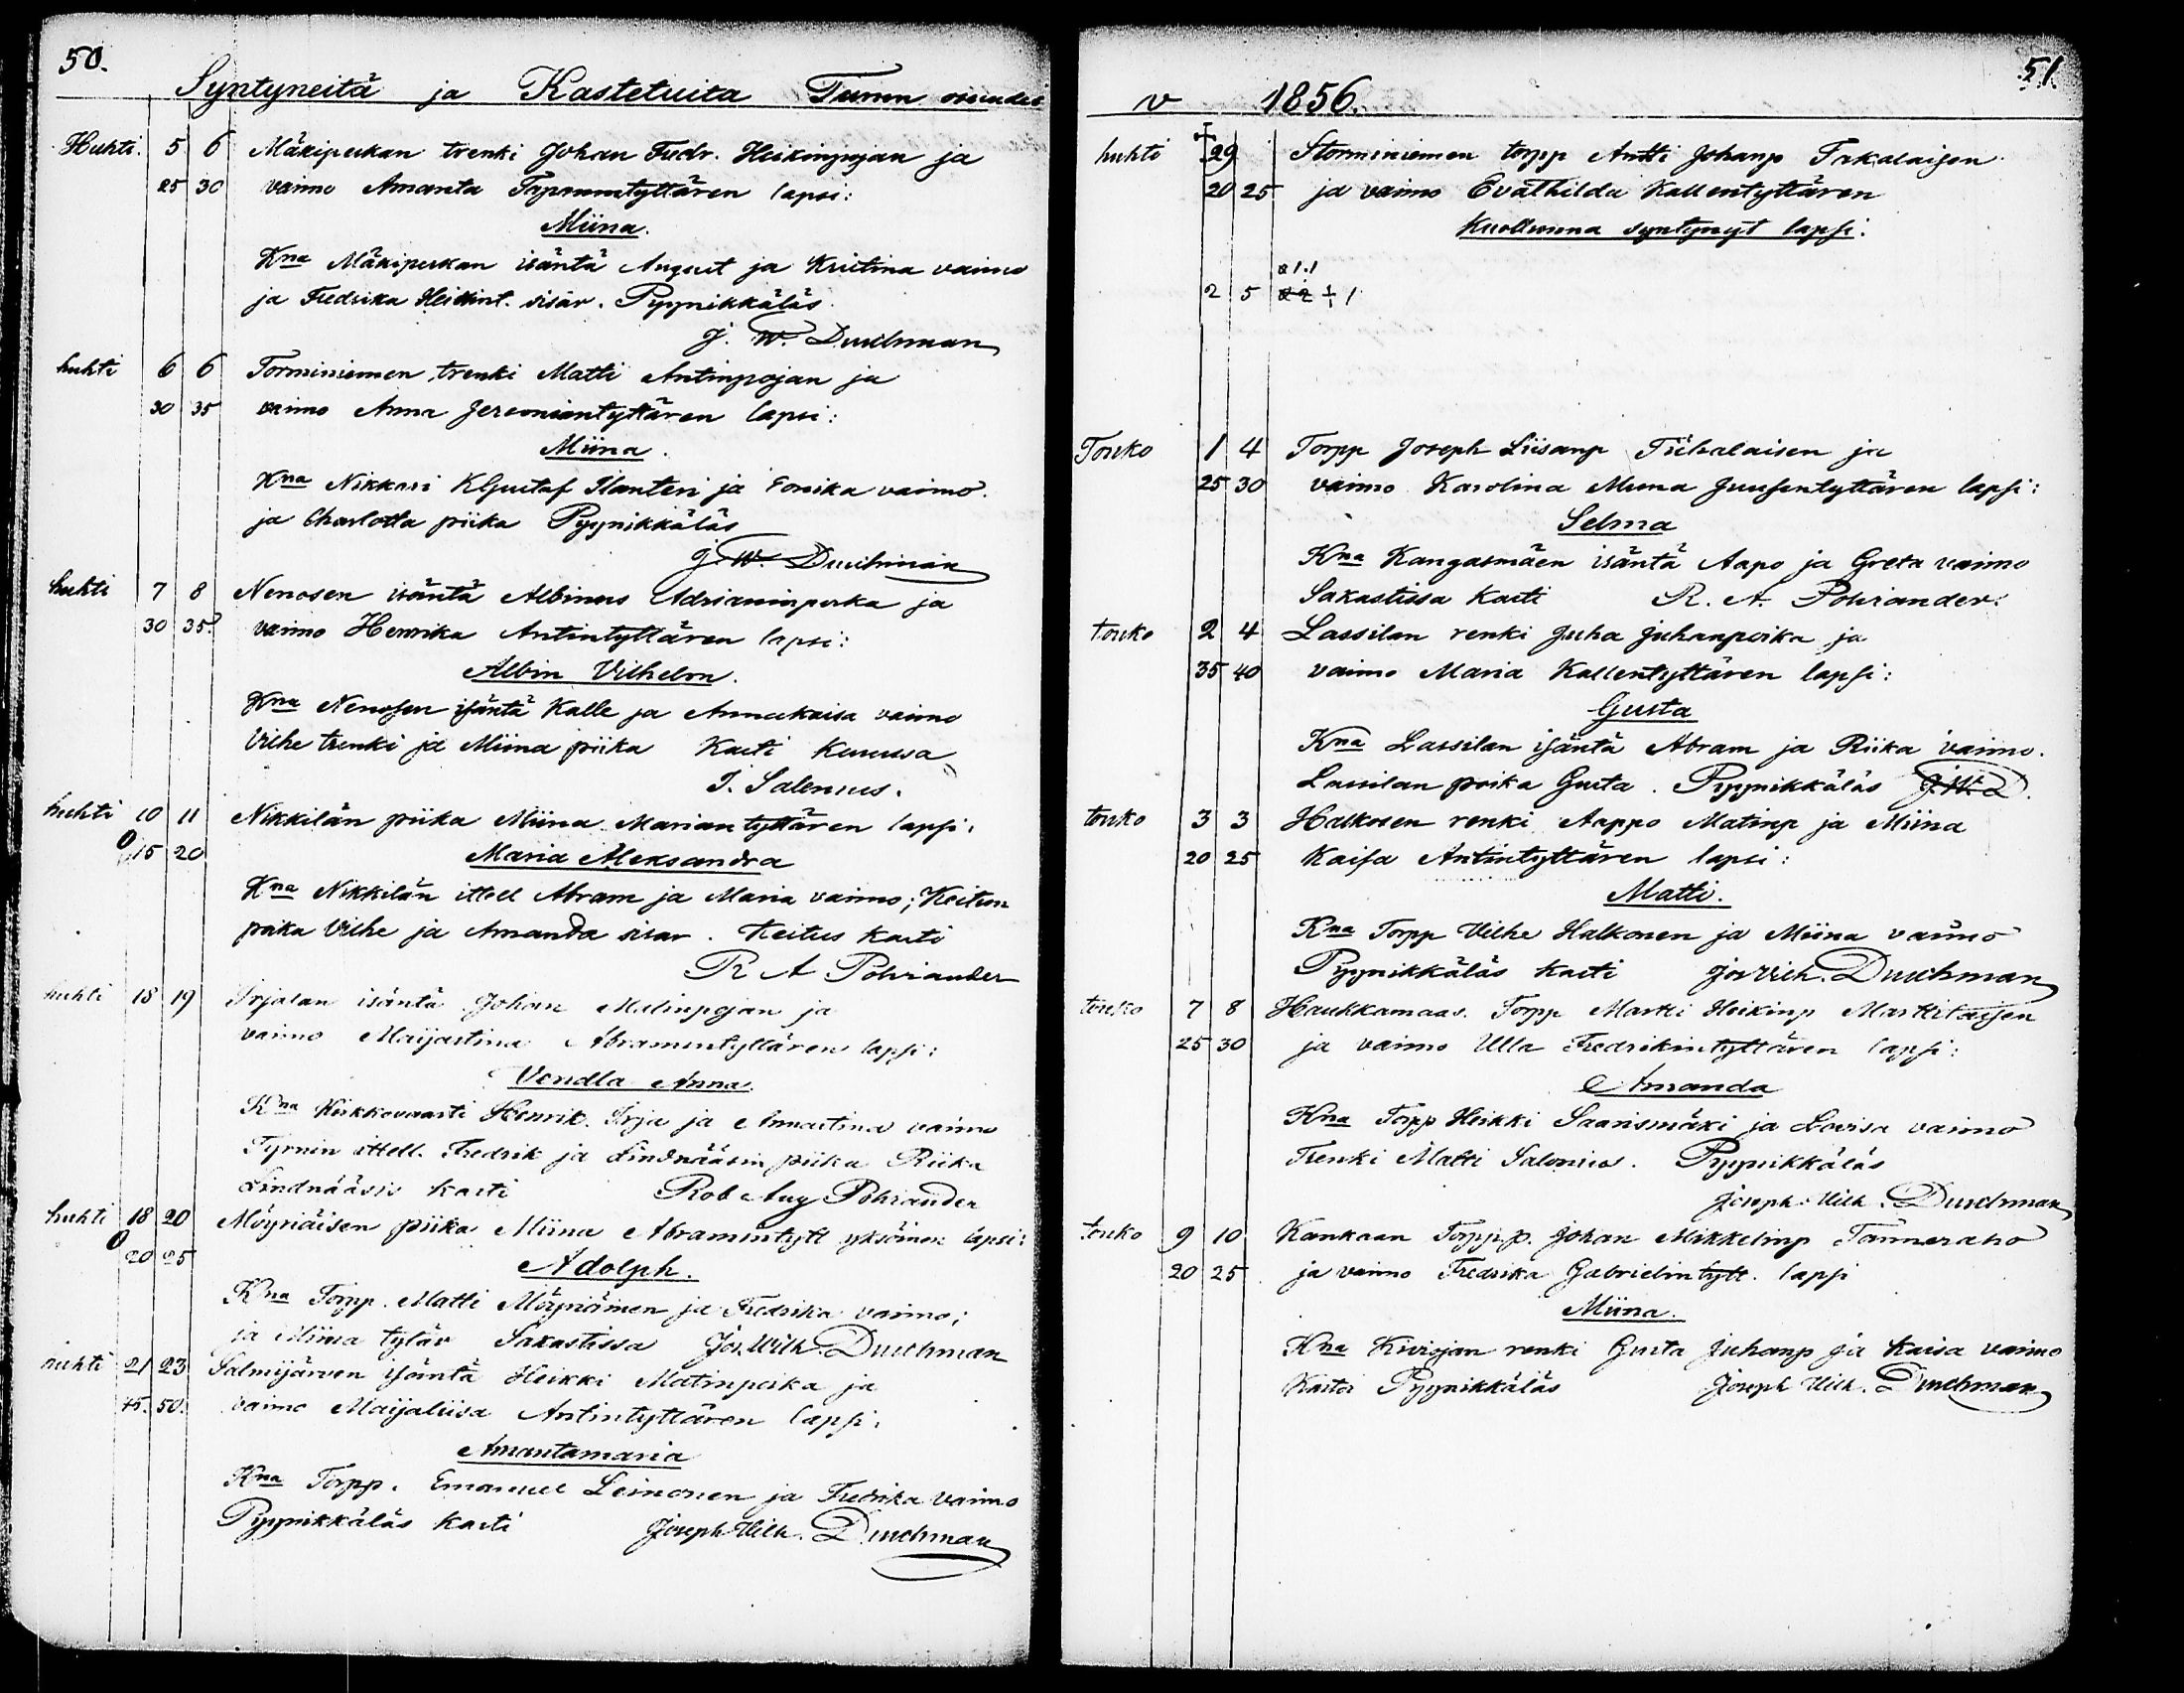 50.
Syntyneitä ja Kastetuita
Huhti. 5 6 Mäkiperkan trenki Johan Fredr. Heikinpojan ja
25 30 vaimo Amanta Tapanintyttären lapsi:
Miina.
Kna Mäkiperkan isäntä August ja Kristina vaimo
ja Fredrika Heikint. sisär. Pyynikkäläs.
J. W. Durchman
huhti 6 6 Torminiemen trenki Matti Antinpojan ja
30 35 vaimo Anna Jeremiantyttären lapsi:
Miina.
Kna Nikkari KGustaf Ilanteri ja vaimo.
ja Charlotta piika Pyynikkäläs
J. W. Durchman
huhti 7 8 Nenosen isäntä Albinus Adrianinpoika ja
30 35. vaimo Henrika Antintyttären lapsi:
Albin Vilhelm.
Kna Nenosen isäntä Kalle ja Annakaisa vaimo
Vilhe trenki ja Miina piika Kasti
J. Salenius.
huhti 10 11 Nikkilän piika Miina Mariantyttären lapsi:
0 15 20
Maria Aleksandra
Kna Nikkilän ittell Abram ja Maria vaimo; Keitun
poika Vilhe ja Amanda sisar. Keitus kasti
R A Polviander
huhti 18 19 Irjalan isäntä Johan Matinpojan ja
vaimo Maijastina Abramintyttären lapsi:
Vendla Anna.
Kna Kirkkovaarti Henrik Irja ja Annastina vaimo
Tyrnin ittell. Fredrik ja Lindnääsin piika Riika
Lindnääsis kasti Rob Aug Polviander
huhti 18 20 Möyriäisen piika Miina Abramintytt yksöinen lapsi:
0 20 25
Adolph.
Kna Torpp. Matti Möyriäinen ja Fredrika vaimo;
ja Miina tytär Sakastissa Jos. Wilh. Durchman
huhti 21 23 Salmijärven isäntä Heikki Matinpoika ja
45. 50. vaimo Maijaliisa Antintyttären lapsi:
Amantamaria
Kna Torpp. Emanuel Leinonen ja Fredrika vaimo
Pyynikkäläs kasti Joseph Wilh. Durchman
51.
v 1856.
huhti 29 Storminiemen torpp Antti Johanp Takalaisen
20 25 ja vaimo Evathilda Kallentyttären
Kuolluunna syntynyt lapsi.
2 5
Touko 1 4 Torpp Joseph Liisanp Tiihalaisen ja
25 30 vaimo Karolina Miina Juusentyttären lapsi:
Selma
Kna Kangasmäen isäntä Aapo ja Greta vaimo
Sakastissa kasti R. A. Polviander.
touko 2 4 Lassilan renki Juha Juhanpoika ja
35 40 vaimo Maria Kallentyttären lapsi:
Gusta
Kna Lassilan isäntä Abram ja Riika vaimo.
Lassilan poika Gusta. Pyynikkäläs J.W.D.
touko 3 3 Halkosen renki Aappo Matinp ja Miina
20 25 Kaisa Antintyttären lapsi:
Matti.
Kna Torpp Vilhe Halkonen ja Miina vaimo
Pyynikkäläs kasti Jos Wilh. Durchman
touko 7 8 Haukkamaas. Torpp Martti Heikinp Marttilaisen
25 30 ja vaimo Ulla Fredrikintyttären lapsi:
Amanda
Kna Torpp Heikki Saarismäki ja Lovisa vaimo
Trenki Matti Salonius. Pyynikkäläs
Joseph. Wilh. Durchman
touko 9 10 Kankaan Torpp p. Johan Mikkelinp Tannerano
20 25 ja vaimo Fredrika Gabrielintytt. lapsi
Miina.
Kna Kiviojan renki Gusta Juhanp ja Kaisa vaimo
Kastoi Pyynikkäläs Joseph Wilh. Durchman